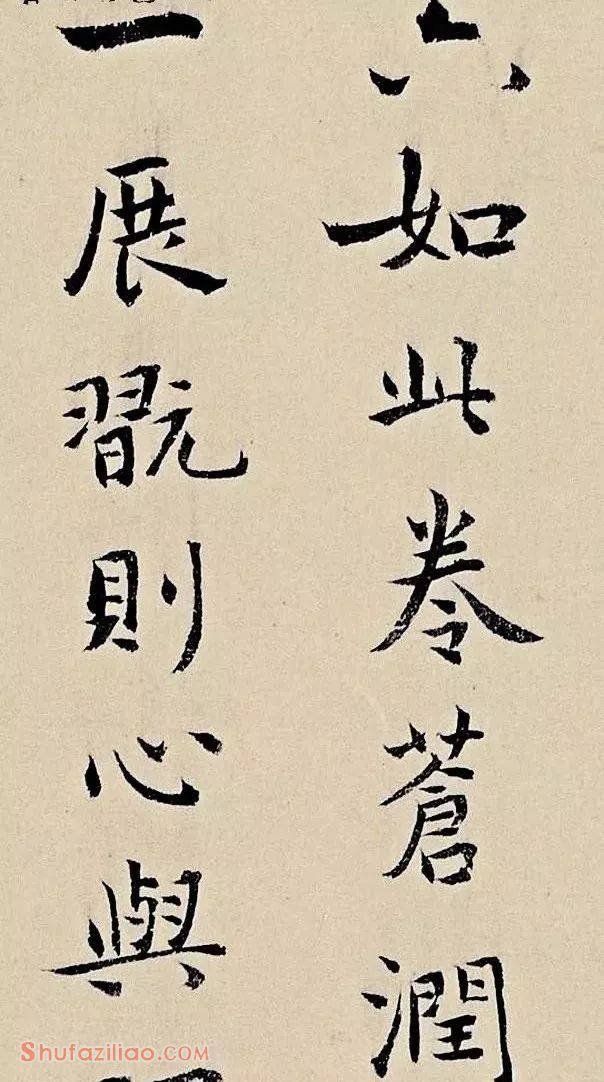 六如此卷蒼潤
一展翫則心與
Shufaziliao.com